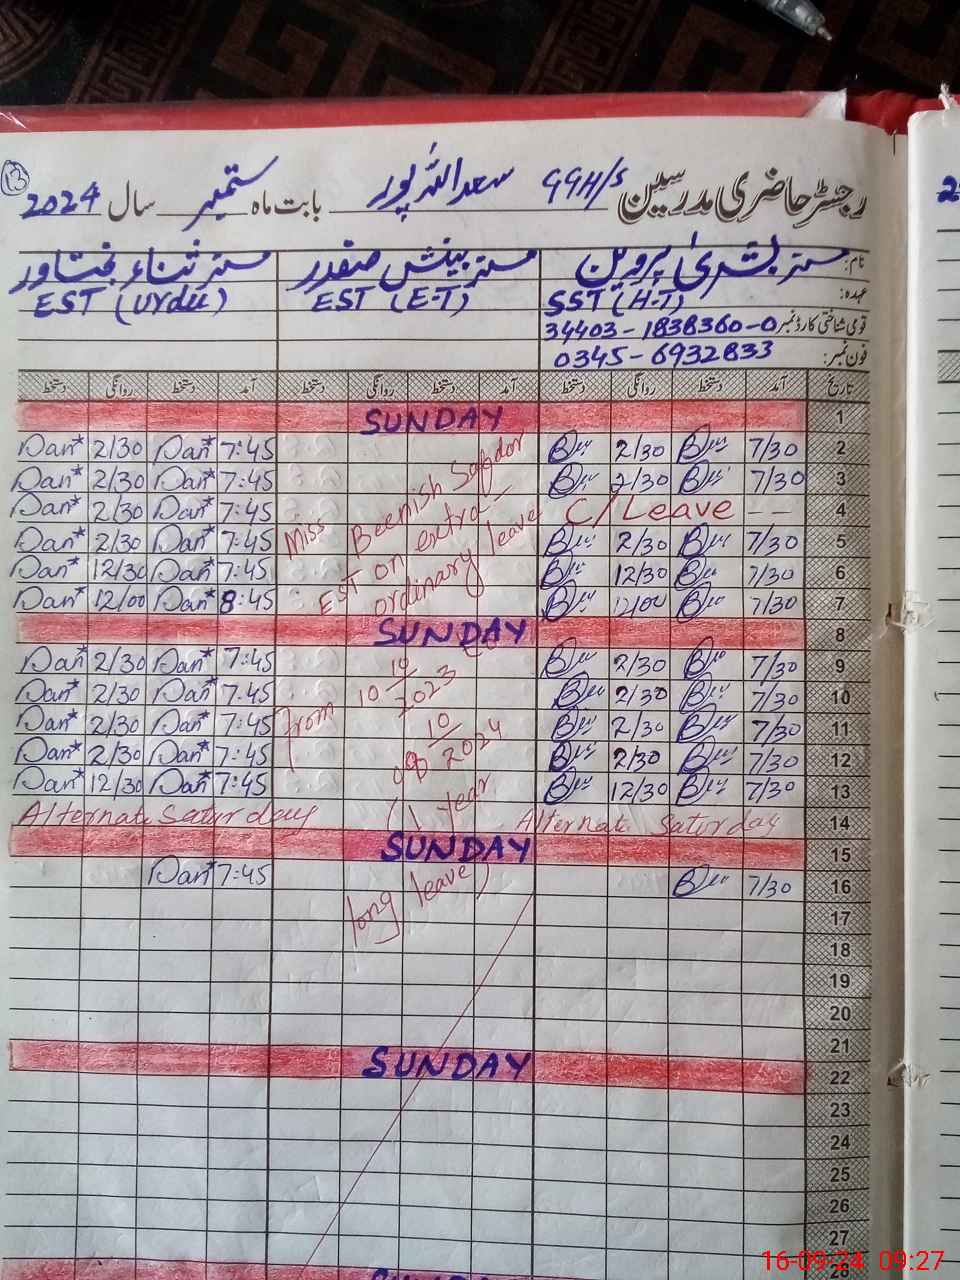 13
رجسٹر حاضری مدرسین GGH/S سعداللہ پور بابت ماہ ستمبر سال 2024
نام: مسز بشریٰ پروین مسز بینش صفدر مسز ثناء بختاور
عہدہ: SST (H-T) EST (E-T) EST (Urdu)
قومی شناختی کارڈ نمبر 34403-1838360-0
فون نمبر: 0345-6932833
تاریخ آمد دستخط روانگی دستخط آمد دستخط روانگی دستخط آمد دستخط روانگی دستخط
1 SUNDAY
2 7/30 2/30 7:45 2/30
3 7/30 2/30 7:45 2/30
4 C/Leave -- 7:45 2/30
5 7/30 2/30 7:45 2/30
6 7/30 12/30 7:45 12/30
7 7/30 12/00 8:45 12/00
Miss Beenish Safdar
EST on extra-
ordinary leave
8 SUNDAY
9 7/30 2/30 7:45 2/30
10 7/30 2/30 7:45 2/30
11 7/30 2/30 7:45 2/30
12 7/30 2/30 7:45 2/30
13 7/30 12/30 7:45 12/30
from 10 10/2023 to
09 10/2024
(1 year
long leave)
14 Alternate Saturday Alternate Saturday
15 SUNDAY
16 7/30 7:45
17
18
19
20
21
22 SUNDAY
23
24
25
26
27
28 SUNDAY
16-09-24 09:27